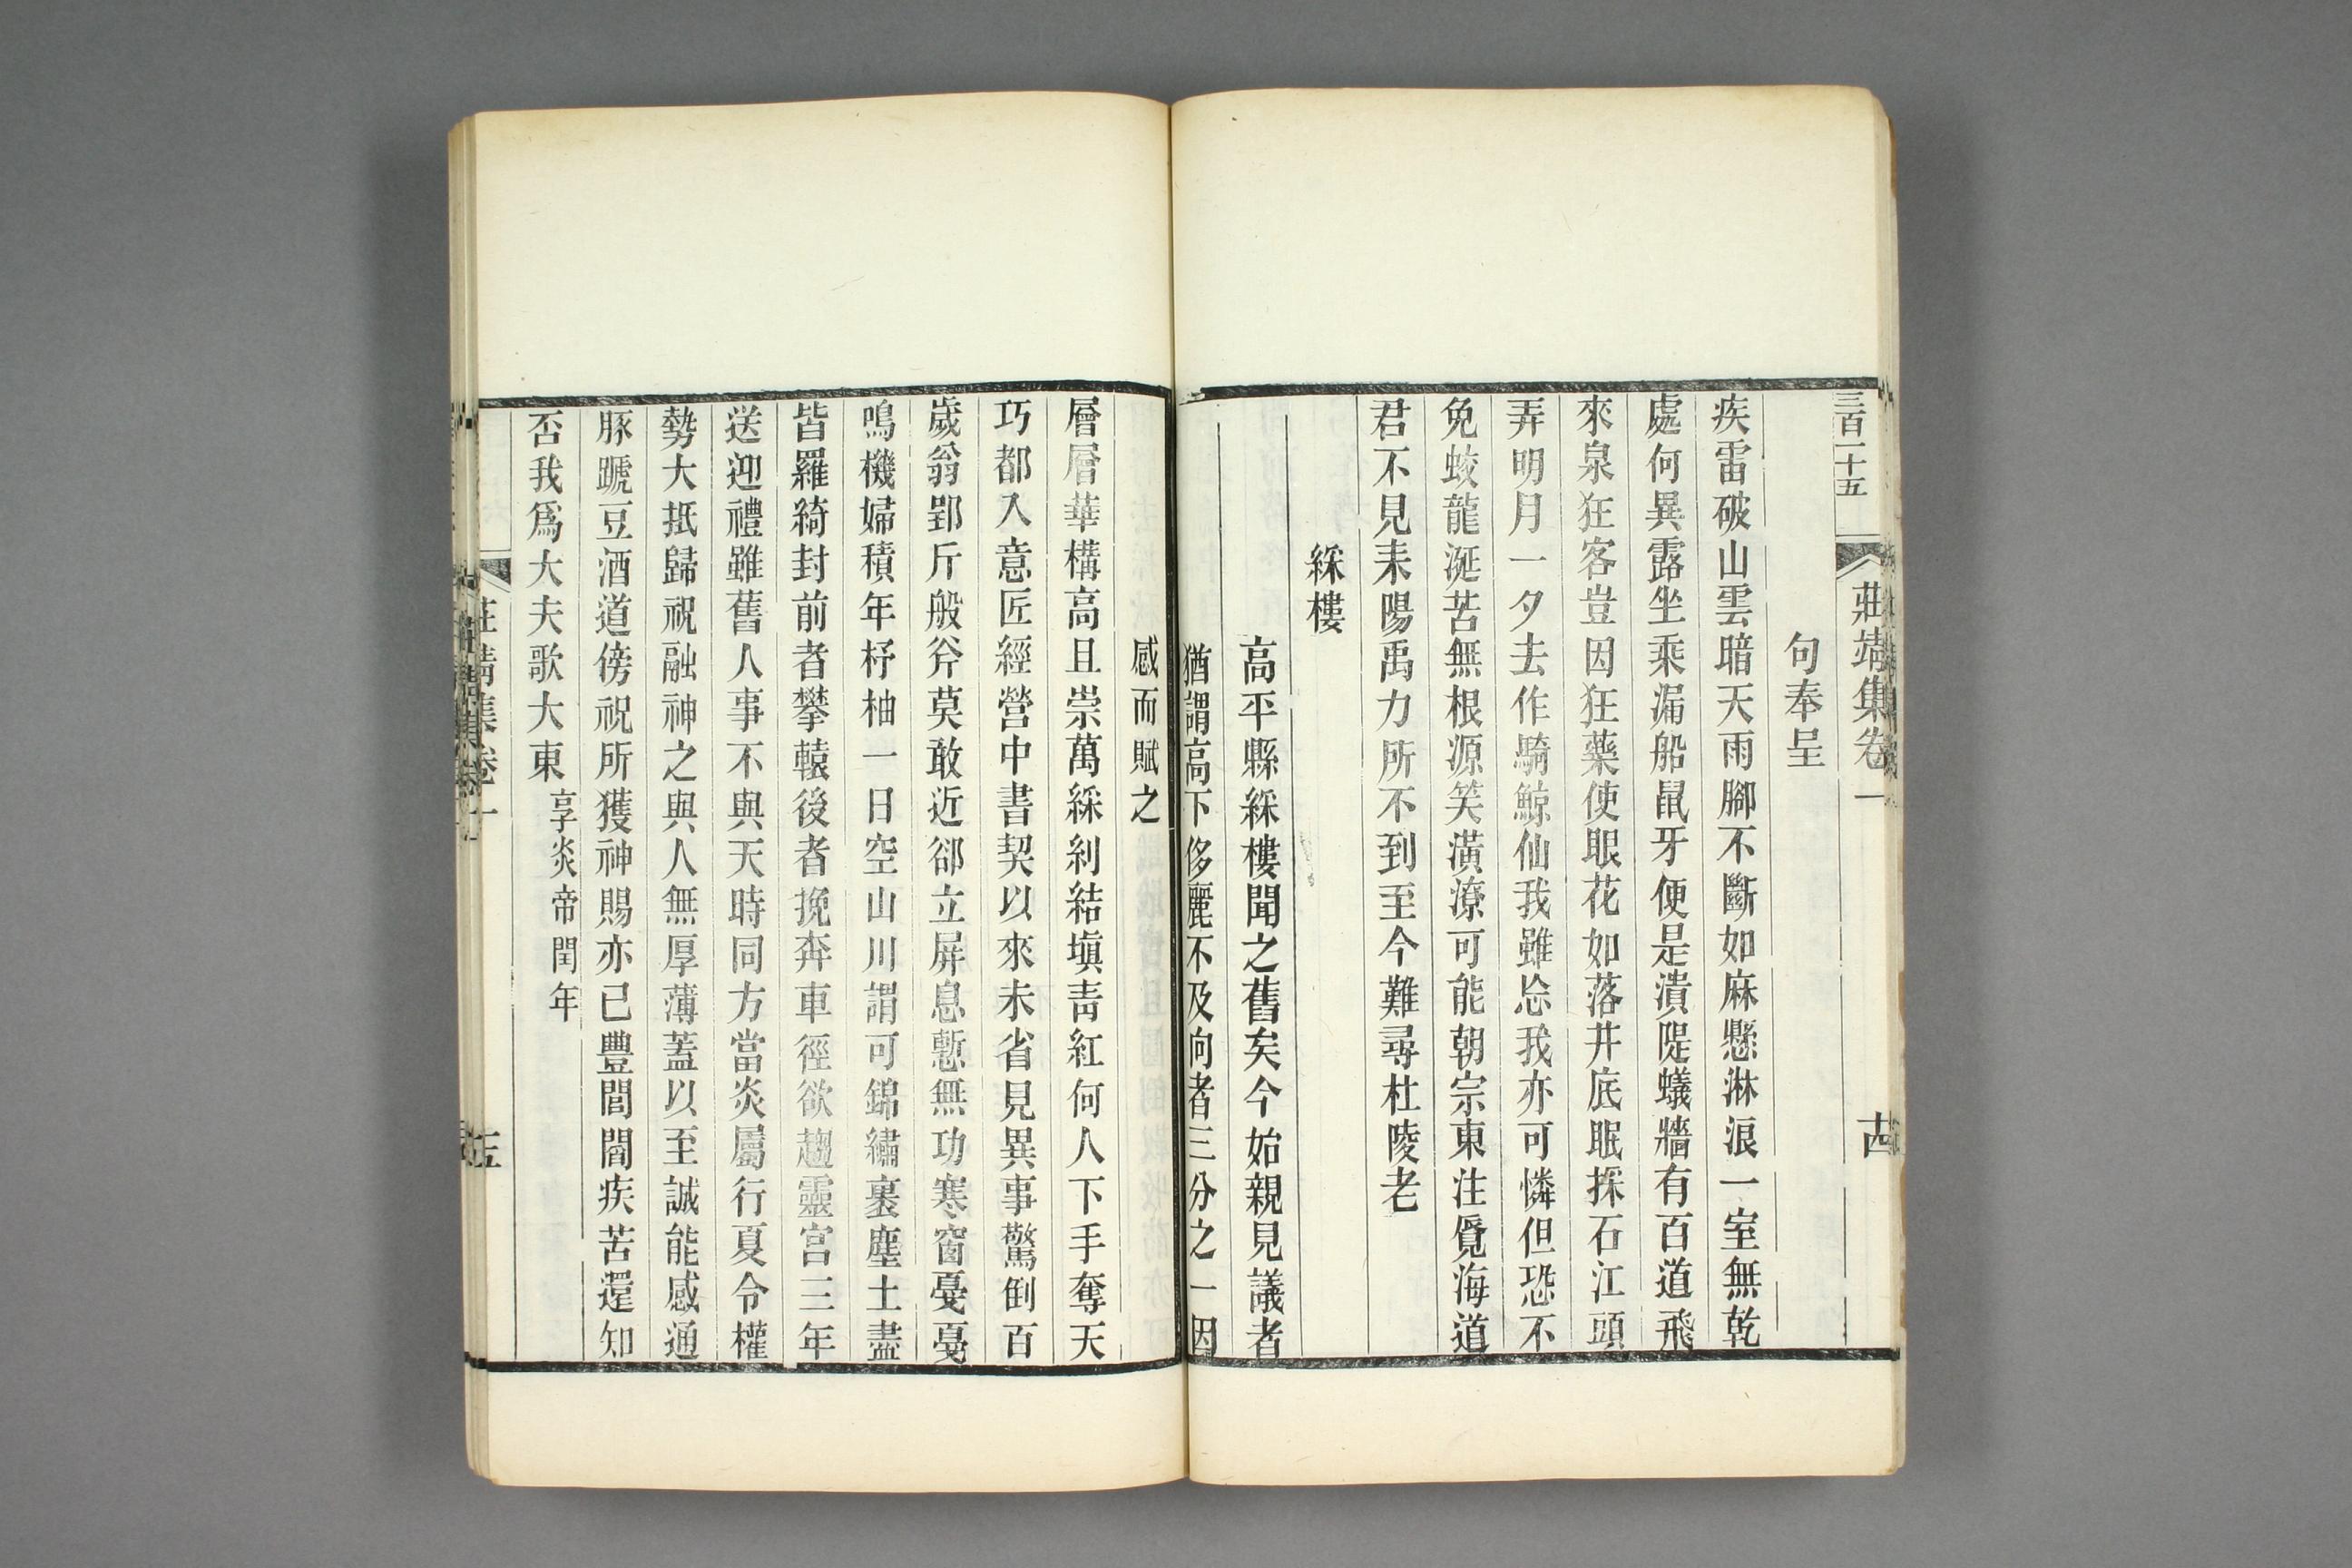 三百二十五
莊靖集卷一
十四
句奉呈
疾雷破山雲暗天雨腳不斷如麻懸淋浪一室無乾
處何異露坐乘漏船鼠牙便是潰隄蟻牆有百道飛
來泉狂客豈因狂藥使眼花如落井底眠採石江頭
弄明月一夕去作騎鯨仙我雖忩我亦可憐但恐不
免蛟龍涎苦無根源笑潢潦可能朝宗東注覓海道
君不見耒陽禹力所不到至今難尋杜陵老
綵樓
高平縣綵樓聞之舊矣今始親見議者
猶謂高下侈麗不及向者三分之一因
感而賦之
層層華構高且崇萬綵糾結塡靑紅何人下手奪天
巧都入意匠經營中書契以來未省見異事驚倒百
歲翁郢斤般斧莫敢近郤立屏息慙無功寒窗戞戞
鳴機婦積年杼柚一日空山川謂可錦繡裹塵土盡
皆羅綺封前者攀轅後者挽奔車徑欲趨靈宮三年
送迎禮雖舊人事不與天時同方當炎屬行夏令權
勢大抵歸祝融神之與人無厚薄蓋以至誠能感通
豚蹏豆酒道傍祝所獲神賜亦已豐閭閻疾苦還知
否我爲大夫歌大東享炎帝閏年
莊靖集卷一
十五